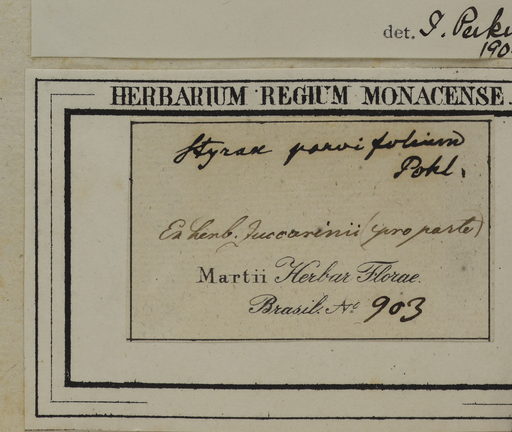 det. J. Perki
190
HERBARIUM REGIUM MONACENSE.
Styrax parvifolium
Pohl.
Ex herb. Zuccarinii (pro parte)
Martii Herbar Florae.
Brasil. No 903